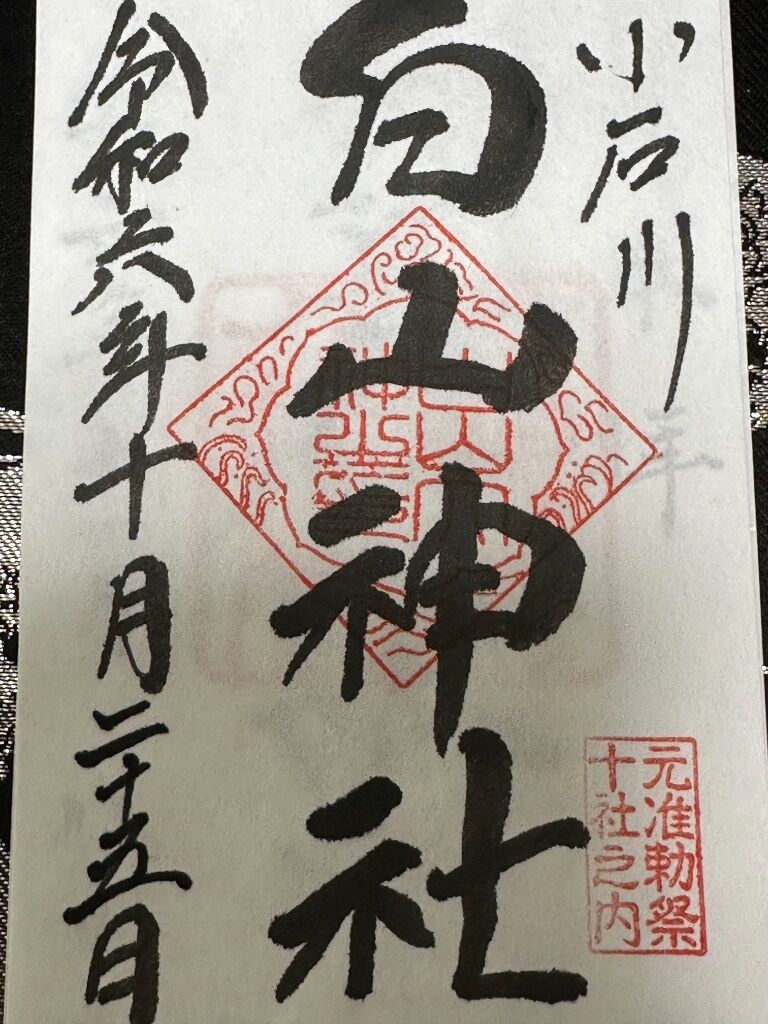 小石川
白山神社
元准勅祭
十社之内
令和六年十月二十五日